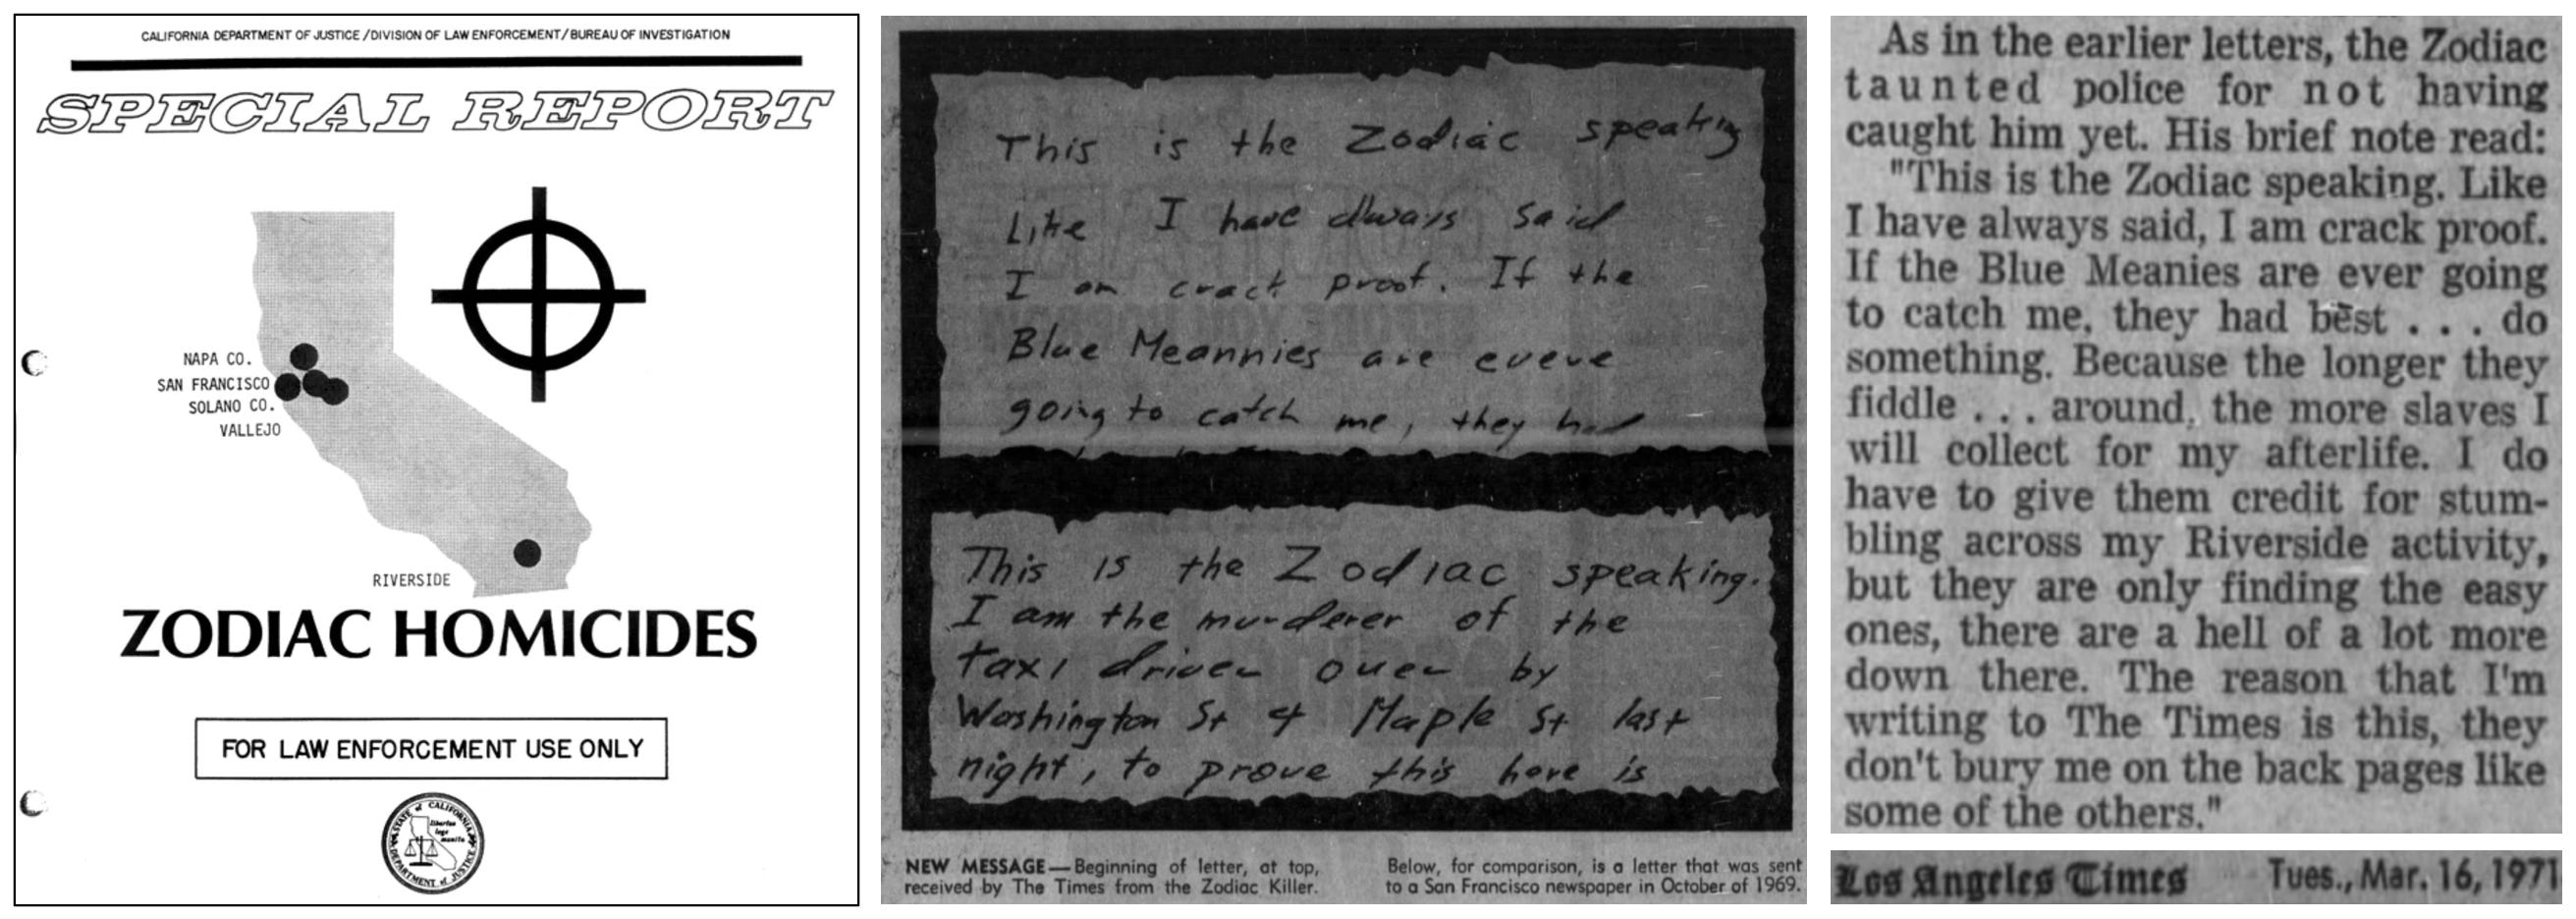 CALIFORNIA DEPARTMENT OF JUSTICE/DIVISION OF LAW ENFORCEMENT/BUREAU OF INVESTIGATION
SPECIAL REPORT
NAPA CO.
SAN FRANCISCO
SOLANO CO.
VALLEJO
RIVERSIDE
ZODIAC HOMICIDES
FOR LAW ENFORCEMENT USE ONLY
STATE of CALIFORNIA
DEPARTMENT of JUSTICE
This is the Zodiac speaking
Like I have always said
I am crack proof. If the
Blue Meannies are evere
going to catch me, they had
This is the Zodiac speaking.
I am the murderer of the
taxi driver over by
Washington St & Maple St last
night, to prove this here is
NEW MESSAGE—Beginning of letter, at top,
received by The Times from the Zodiac Killer.
Below, for comparison, is a letter that was sent
to a San Francisco newspaper in October of 1969.
As in the earlier letters, the Zodiac
taunted police for not having
caught him yet. His brief note read:
"This is the Zodiac speaking. Like
I have always said, I am crack proof.
If the Blue Meanies are ever going
to catch me, they had best . . . do
something. Because the longer they
fiddle . . . around, the more slaves I
will collect for my afterlife. I do
have to give them credit for stum-
bling across my Riverside activity,
but they are only finding the easy
ones, there are a hell of a lot more
down there. The reason that I'm
writing to The Times is this, they
don't bury me on the back pages like
some of the others."
Los Angeles Times Tues., Mar. 16, 1971